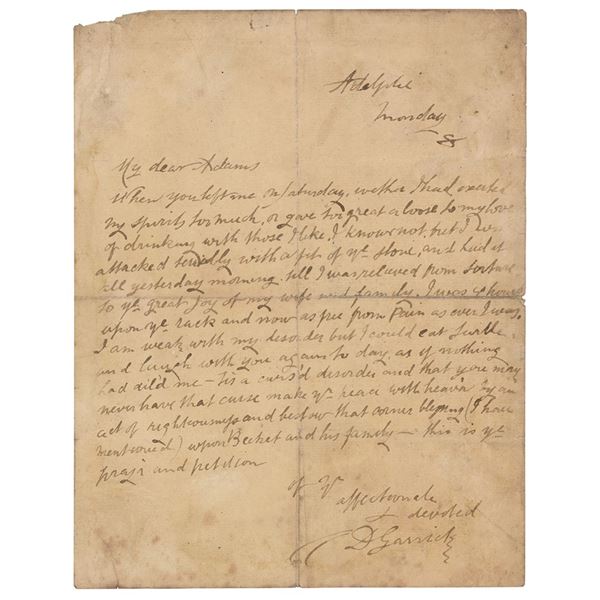 Adelphi
Monday
My dear Adams
When you left me on Saturday, wether I had exerted
my spirits too much, or gave too great a loose to my love
of drinking with those I like, I know not, but I was
attacked terribly with a fit of ye stone, and had it
all yesterday morning, till I was relieved from torture
to ye great joy of my wife and family. I was 4 hours
upon ye rack and now as free from Pain as ever I was.
I am weak with my desorder but I could eat Turtle
and laugh with you again to day, as if nothing
had aild me – tis a curs'd disorder and that you may
never have that curse make yr peace with heaven by an
act of righteousness and bestow that corner blessing (I have
mentioned) upon Becket and his family – this is ye
pray'r and petition
of Yr
affectionate
& devoted
D Garrick